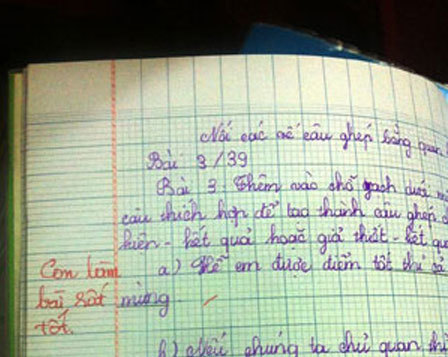 Nối các vế câu ghép bằng quan
Bài 3/39
Bài 3. Thêm vào chỗ gạch dưới một
câu thích hợp để tạo thành câu ghép
kiện - kết quả hoặc giả thiết - kết quả
a) Hễ em được điểm tốt thì cả
mừng.
Con làm
bài rất
tốt.
b) Nếu chúng ta chủ quan thì